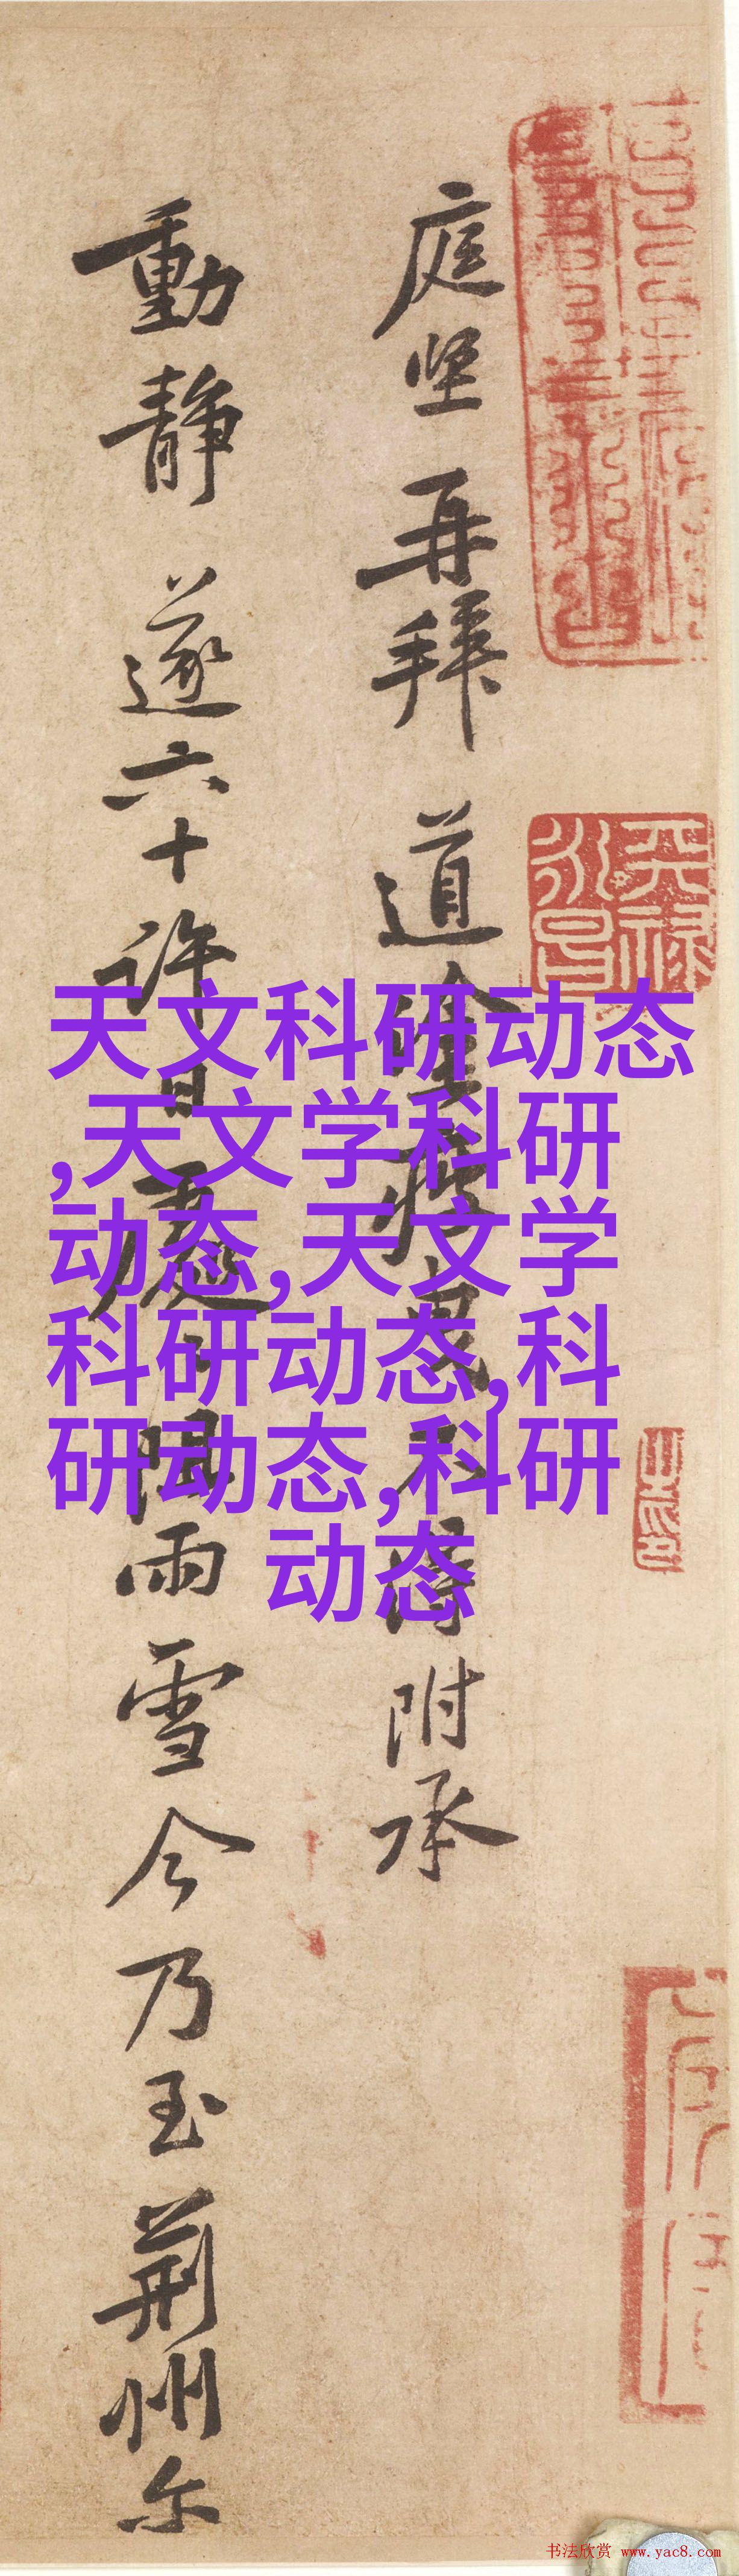 天禄
永昌
庭坚再拜道塗不得附承
動静遂六十許日處阻雨雪今乃至荆州尓
天文科研动态
,天文学科研
动态,天文学
科研动态,科
研动态,科研
动态
书法欣赏 www.yac8.com